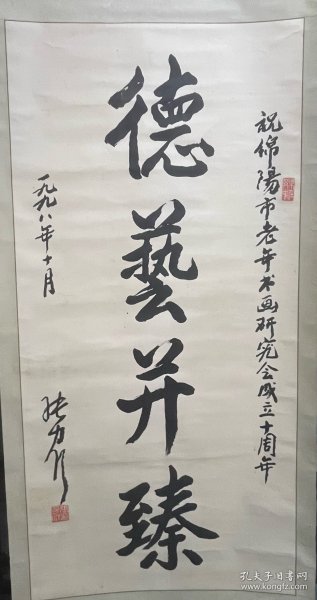 祝绵阳市老年书画研究会成立十周年
德藝并臻
一九九八年十月
孔夫子旧书网